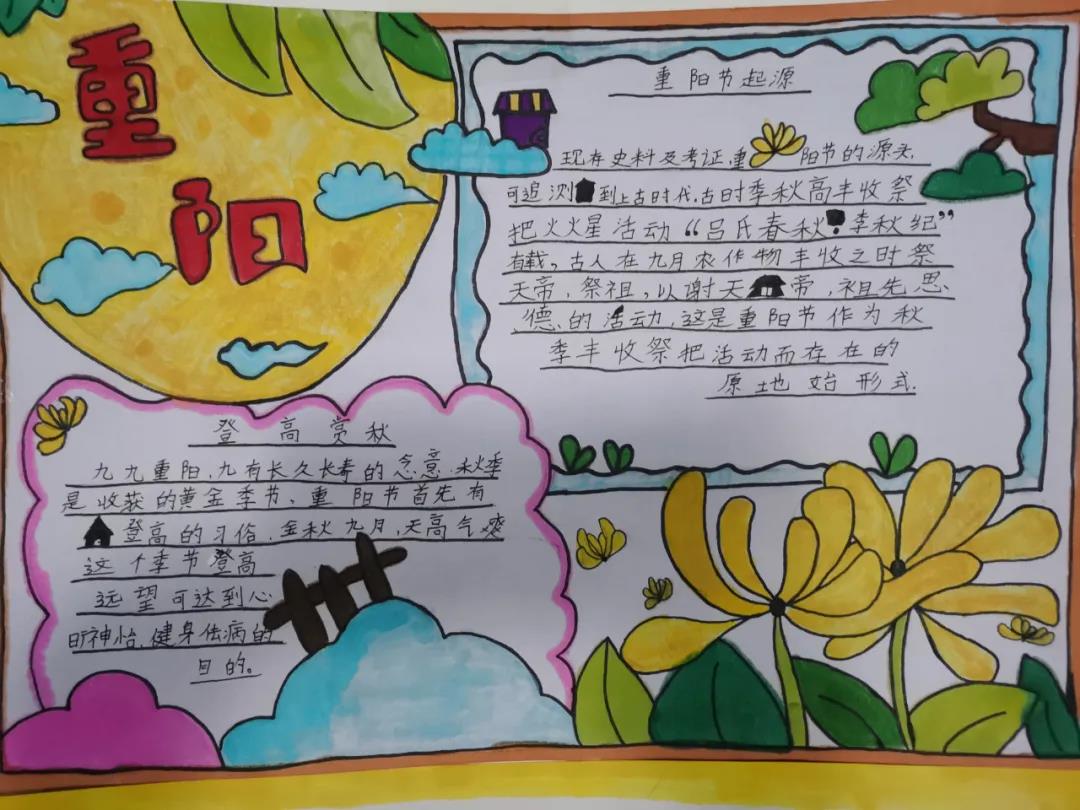 重
阳
重阳节起源
现存史料及考证,重阳节的源头,
可追测到上古时代,古时季秋高丰收祭
把火火星活动“吕氏春秋?季秋纪”
有载,古人在九月农作物丰收之时祭
天帝、祭祖,以谢天帝,祖先思
德、的活动,这是重阳节作为秋
季丰收祭把活动而存在的
原土地始形式.
登高赏秋
九九重阳,九有长久长寿的念意.秋季
是收获的黄金季节、重阳节首先有
登高的习俗,金秋九月,天高气爽
这个季节登高
远望可达到心
旷神怡.健身祛病的
目的。